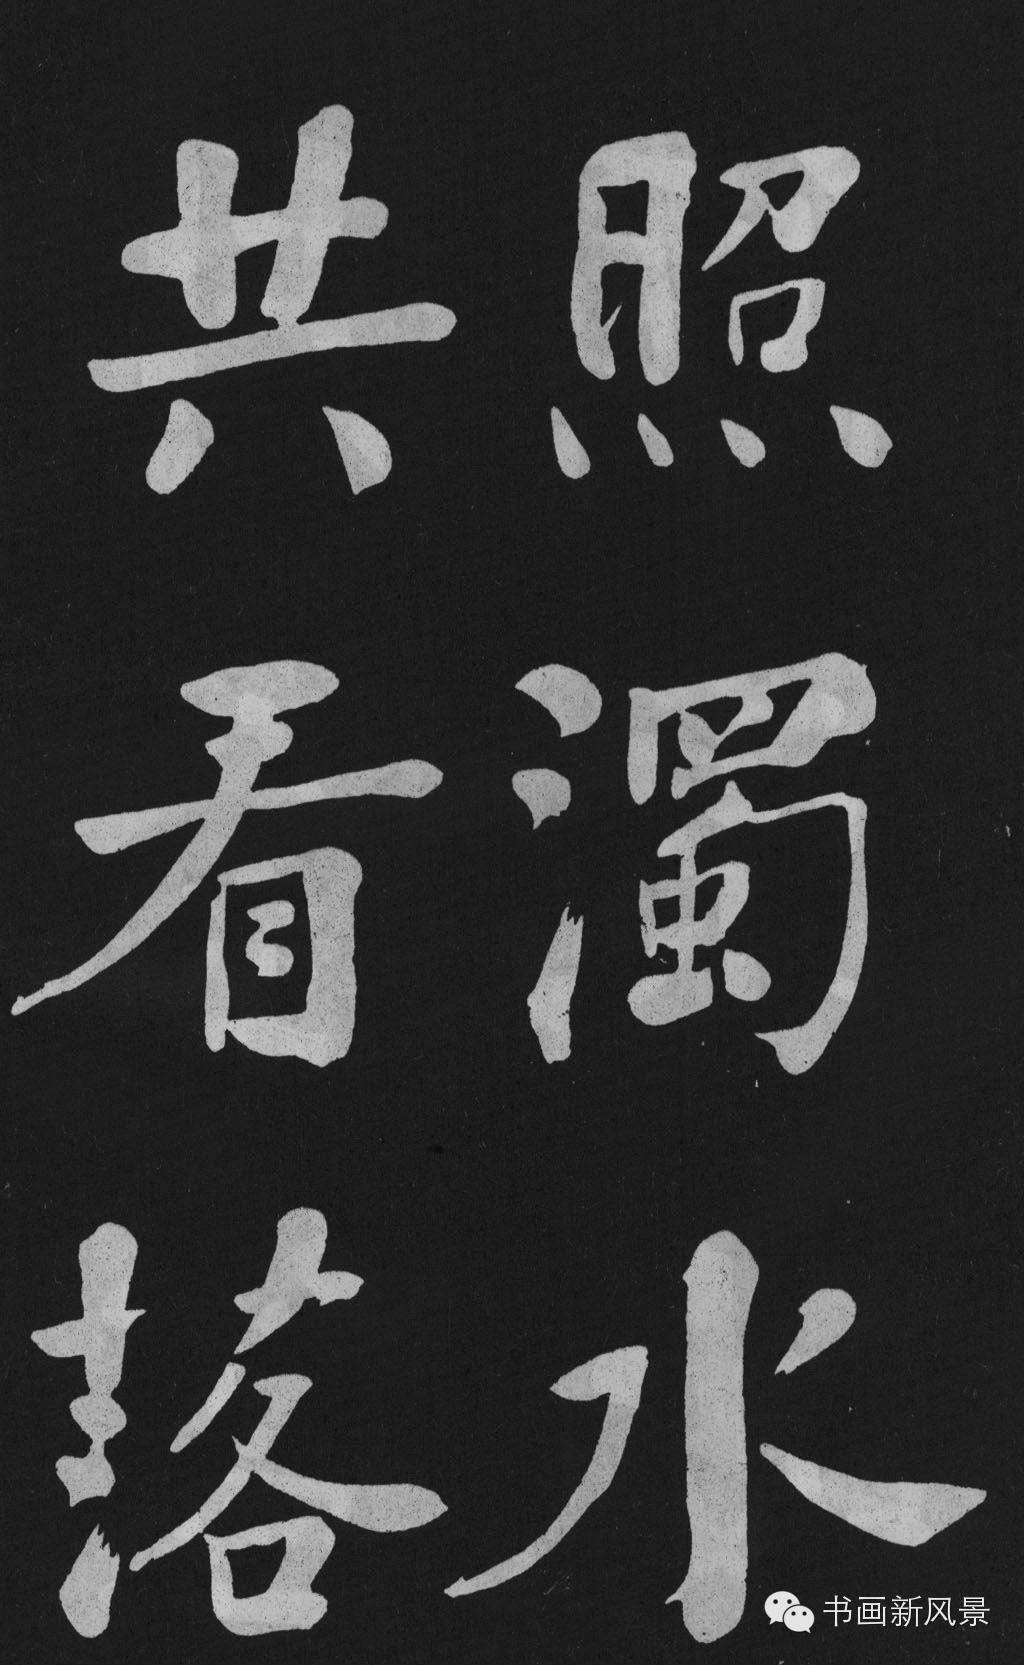 照濁水
共看落
书画新风景